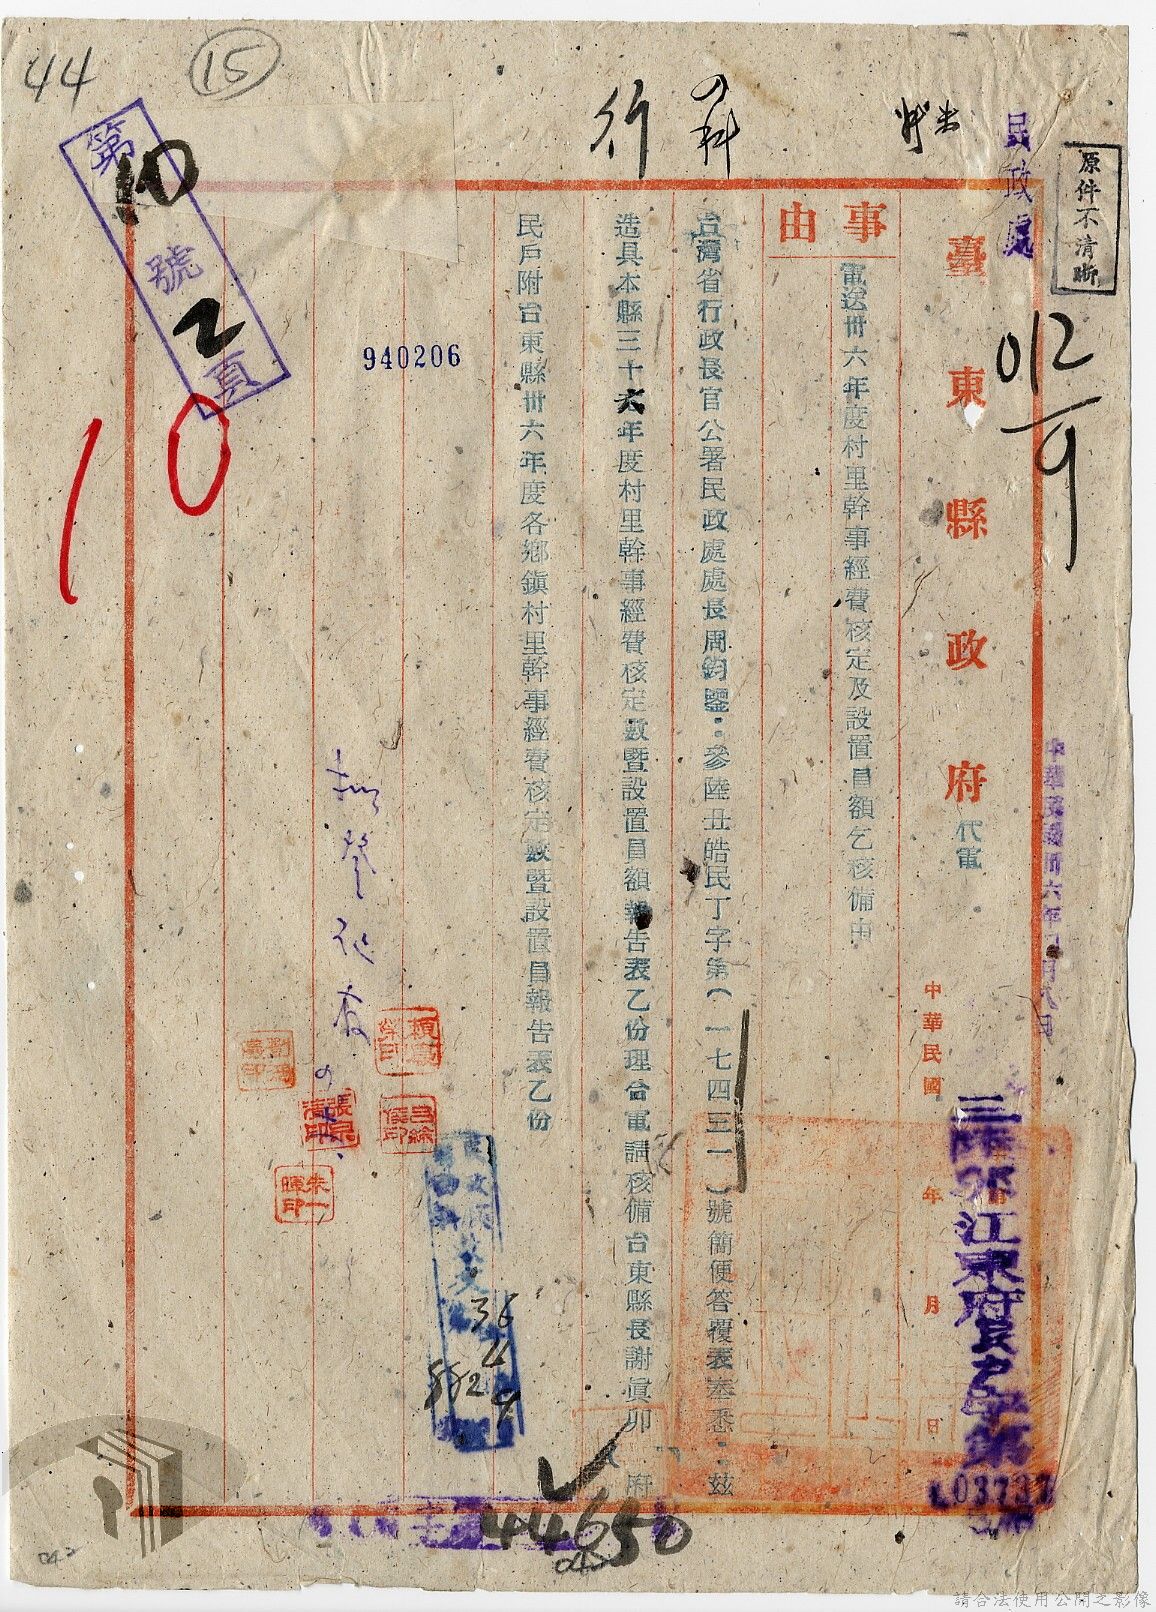 44
15
行
科
民政處
原件不清晰
第10號2頁
012/9
10
940206
臺東縣政府代電
中華民國 年 月 日
中華民國卅六年四月八日
江東府民
03737
事由
電送卅六年度村里幹事經費核定及設置員額乞核備由
台灣省行政長官公署民政處處長周鈞鑒:參陸丑皓民丁字第(一七四三一)號簡便答覆表奉悉:茲
造具本縣三十六年度村里幹事經費核定數暨設置員額報告表乙份理合電請核備台東縣長謝眞卯 府
民戶附台東縣卅六年度各鄉鎭村里幹事經費核定數暨設置員報告表乙份
36
4
9
44650
請合法使用公開之影像